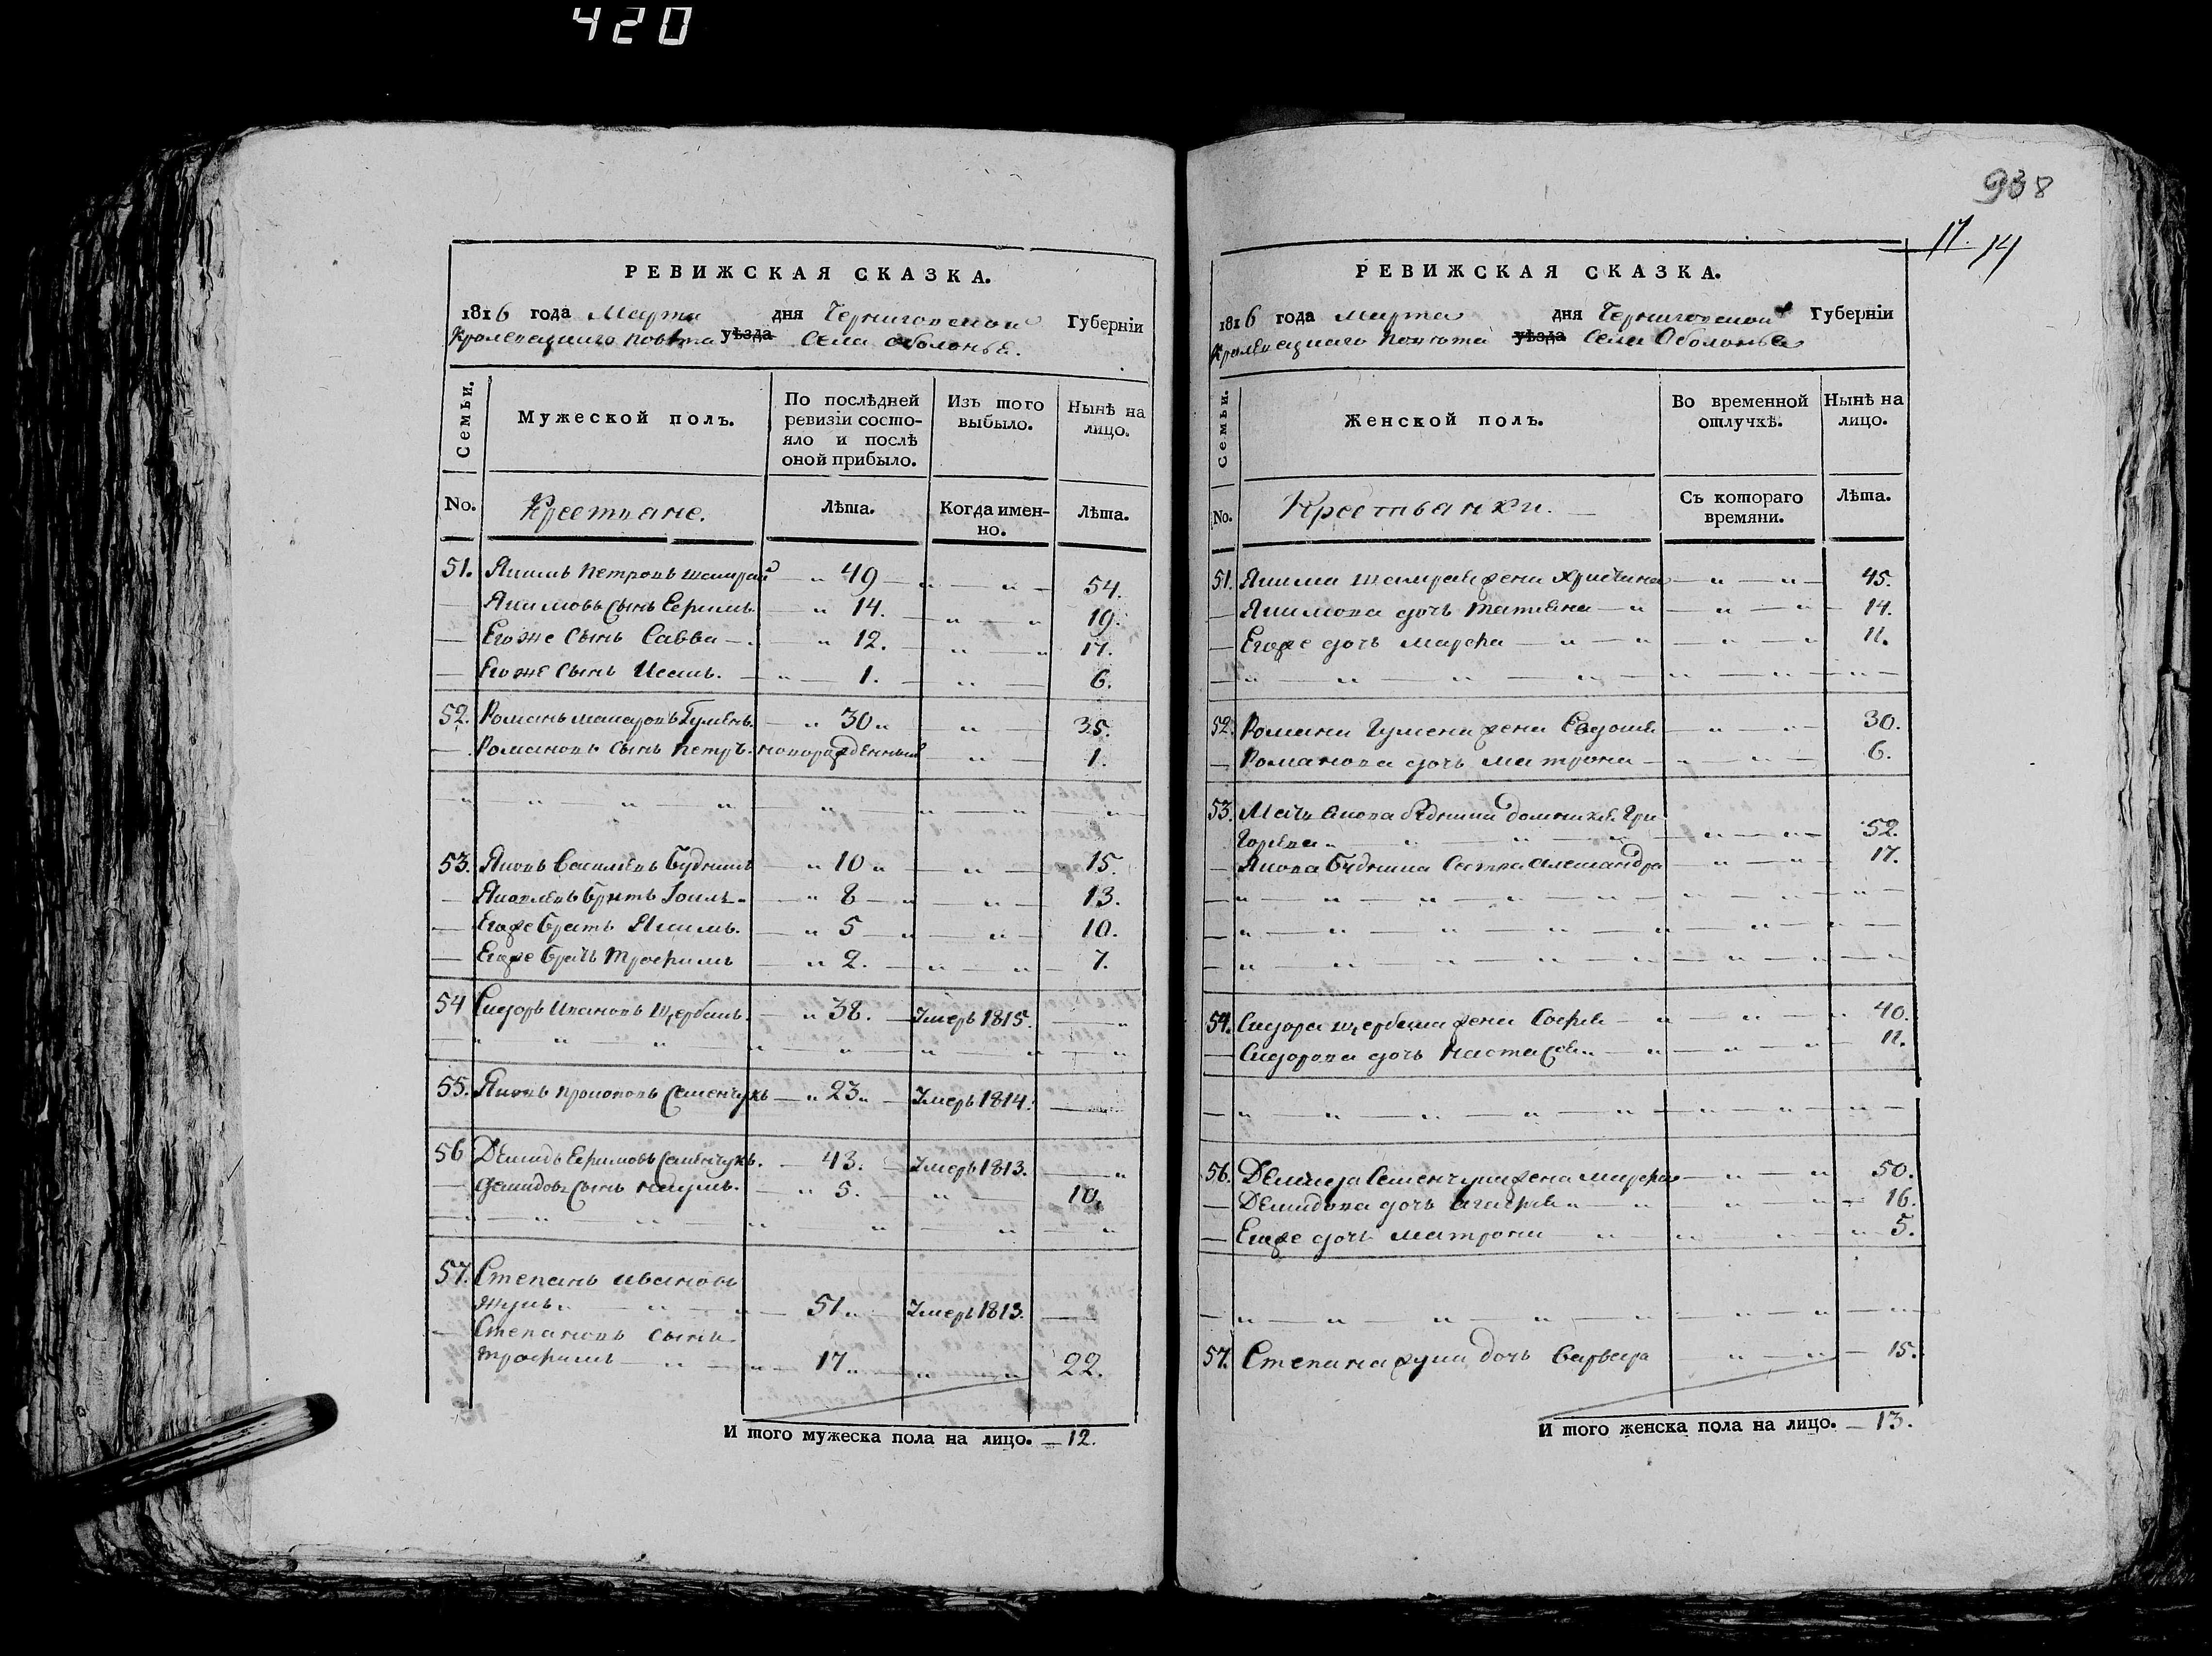 420
РЕВИЖСКАЯ СКАЗКА.
1816 года Марта дня Черниговской Губерніи
Кролевецкаго Повѣта уѣзда Села Оболонья.
Семьи.
Мужеской полъ.
По послѣдней
ревизіи состо-
яло и послѣ
оной прибыло.
Изъ того
выбыло.
Нынѣ на
лицо.
No. Крестьяне. Лѣта. Когда имен-
но. Лѣта.
51. Якимъ Петровъ 49 54.
Якимовъ Сынъ Ефимъ 14. 19.
Егоже Сынъ Савва 12. 17.
Егоже Сынъ Исакъ. 1. 6.
52. Романъ Макаровъ Гуменъ 30 35.
Романовъ Сынъ Петръ новорожденный 1.
53. Яковъ Василевъ Будникъ 10 15.
Яковлевъ Братъ 8 13.
Егоже Братъ Якимъ. 5 10.
Егоже Братъ Трофимъ 2. 7.
54 Сидоръ Ивановъ Щербакъ. 38. Умеръ 1815.
55. Яковъ Прокоповъ Семенчукъ 23 Умеръ 1814.
56 Демидъ Ефимовъ Семенчукъ. 43. Умеръ 1813.
Демидовъ Сынъ Наумъ. 5. 10.
57. Степанъ Ивановъ
Жукъ 51. Умеръ 1813.
Степановъ Сынъ
Трофимъ 17. 22.
И того мужеска пола на лицо. 12.
938
17. 14
РЕВИЖСКАЯ СКАЗКА.
1816 года Марта дня Черниговской Губерніи
Кролевецкаго Повѣта уѣзда Села Оболонья
Семьи.
Женской полъ.
Во временной
отлучкѣ.
Нынѣ на
лицо.
No. Крестьянки. Съ котораго
времяни. Лѣта.
51. Якима жена Христина 45.
Якимова дочь Татьяна 14.
Егоже дочь Марфа 11.
52. Романа Гумена жена Евдокия 30.
Романова дочь Матрона 6.
53. Мать Якова Будника Домникия Гри
горьева 52.
Якова Будника Сестра Александра 17.
54. Сидора Щербака жена София 40.
Сидорова дочь Настасия 11.
56. Демида Семенчука жена Марфа 50.
Демидова дочь Агафия 16.
Егоже дочь Матрона 5.
57. Степана Жука дочь Варвара 15.
И того женска пола на лицо. 13.